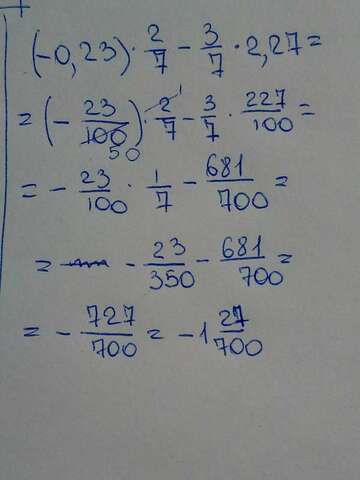 (-0,23) · 2/7 - 3/7 · 2,27 =
= (- 23/100 50) · 2/7 1 - 3/7 · 227/100 =
= - 23/100 · 1/7 - 681/700 =
= - 23/350 - 681/700 =
= - 727/700 = - 1 27/700